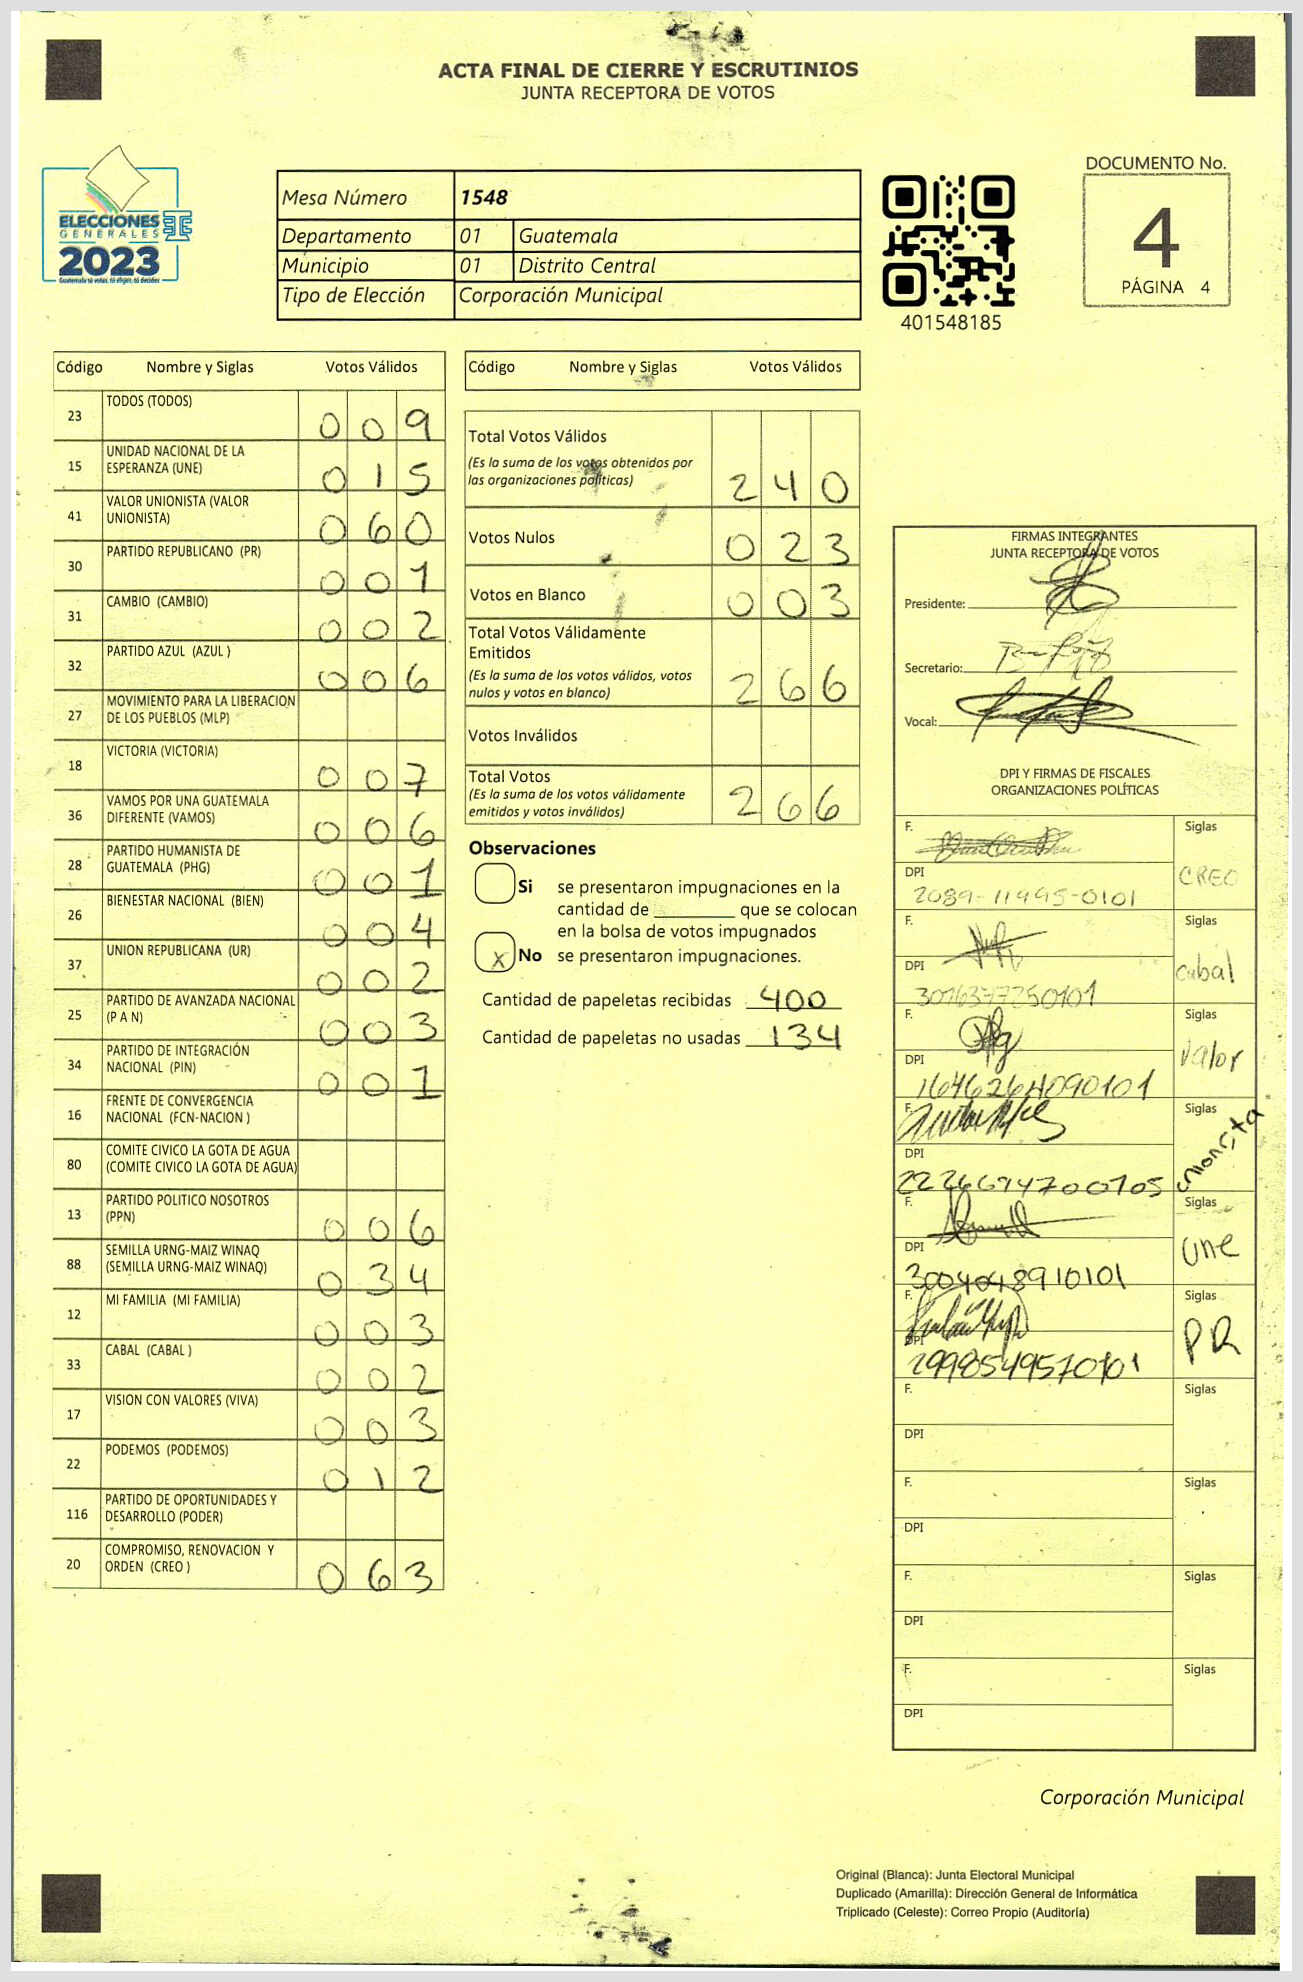 ACTA FINAL DE CIERRE Y ESCRUTINIOS
JUNTA RECEPTORA DE VOTOS
ELECCIONES
GENERALES
2023
Guatemala tú votas, tú eliges, tú decides
Mesa Número 1548
Departamento 01 Guatemala
Municipio 01 Distrito Central
Tipo de Elección Corporación Municipal
401548185
DOCUMENTO No.
4
PÁGINA 4
Código Nombre y Siglas Votos Válidos
23 TODOS (TODOS) 0 0 9
15 UNIDAD NACIONAL DE LA
ESPERANZA (UNE) 0 1 5
41 VALOR UNIONISTA (VALOR
UNIONISTA) 0 6 0
30 PARTIDO REPUBLICANO (PR) 0 0 1
31 CAMBIO (CAMBIO) 0 0 2
32 PARTIDO AZUL (AZUL ) 0 0 6
27 MOVIMIENTO PARA LA LIBERACION
DE LOS PUEBLOS (MLP)
18 VICTORIA (VICTORIA) 0 0 7
36 VAMOS POR UNA GUATEMALA
DIFERENTE (VAMOS) 0 0 6
28 PARTIDO HUMANISTA DE
GUATEMALA (PHG) 0 0 1
26 BIENESTAR NACIONAL (BIEN) 0 0 4
37 UNION REPUBLICANA (UR) 0 0 2
25 PARTIDO DE AVANZADA NACIONAL
(P A N) 0 0 3
34 PARTIDO DE INTEGRACIÓN
NACIONAL (PIN) 0 0 1
16 FRENTE DE CONVERGENCIA
NACIONAL (FCN-NACION )
80 COMITE CIVICO LA GOTA DE AGUA
(COMITE CIVICO LA GOTA DE AGUA)
13 PARTIDO POLITICO NOSOTROS
(PPN) 0 0 6
88 SEMILLA URNG-MAIZ WINAQ
(SEMILLA URNG-MAIZ WINAQ) 0 3 4
12 MI FAMILIA (MI FAMILIA) 0 0 3
33 CABAL (CABAL ) 0 0 2
17 VISION CON VALORES (VIVA) 0 0 3
22 PODEMOS (PODEMOS) 0 1 2
116 PARTIDO DE OPORTUNIDADES Y
DESARROLLO (PODER)
20 COMPROMISO, RENOVACION Y
ORDEN (CREO ) 0 6 3
Código Nombre y Siglas Votos Válidos
Total Votos Válidos
(Es la suma de los votos obtenidos por
las organizaciones políticas) 2 4 0
Votos Nulos 0 2 3
Votos en Blanco 0 0 3
Total Votos Válidamente
Emitidos
(Es la suma de los votos válidos, votos
nulos y votos en blanco) 2 6 6
Votos Inválidos
Total Votos
(Es la suma de los votos válidamente
emitidos y votos inválidos) 2 6 6
Observaciones
Si se presentaron impugnaciones en la
cantidad de ________ que se colocan
en la bolsa de votos impugnados
x No se presentaron impugnaciones.
Cantidad de papeletas recibidas 400
Cantidad de papeletas no usadas 134
FIRMAS INTEGRANTES
JUNTA RECEPTORA DE VOTOS
Presidente:
Secretario:
Vocal:
DPI Y FIRMAS DE FISCALES
ORGANIZACIONES POLÍTICAS
F. Siglas
DPI CREO
2089-11995-0101
F. Siglas
DPI cabal
F. Siglas
DPI Valor
F. Siglas
DPI unionista
F. Siglas
DPI une
3004048910101
F. Siglas
DPI PR
2998549570101
F. Siglas
DPI
F. Siglas
DPI
F. Siglas
DPI
F. Siglas
DPI
Corporación Municipal
Original (Blanca): Junta Electoral Municipal
Duplicado (Amarilla): Dirección General de Informática
Triplicado (Celeste): Correo Propio (Auditoría)